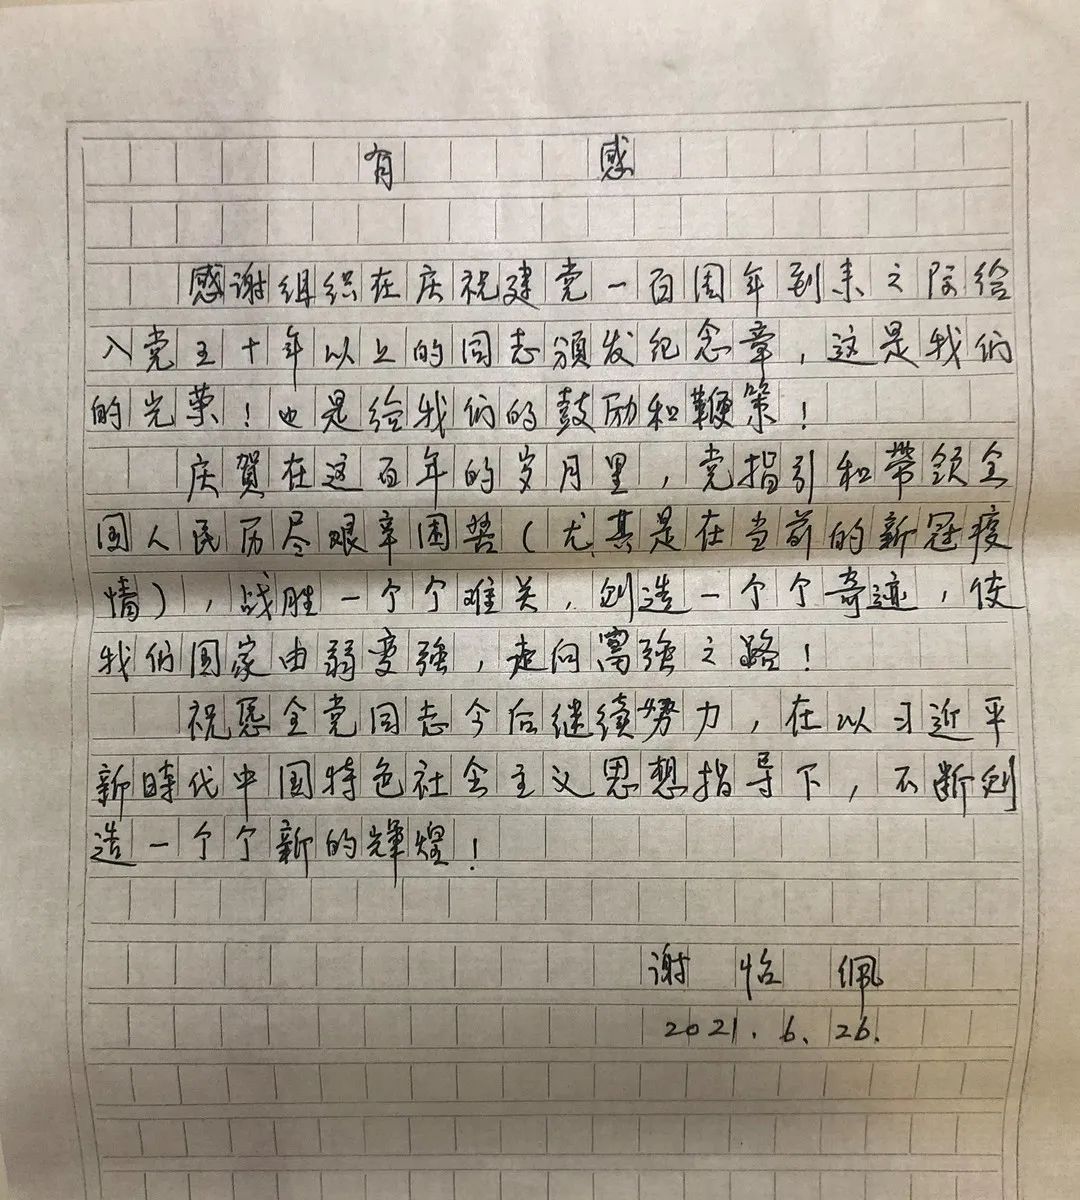 有感
感谢组织在庆祝建党一百周年到来之际给
入党五十年以上的同志颁发纪念章，这是我们
的光荣！也是给我们的鼓励和鞭策！
庆賀在这百年的岁月里，党指引和帶领全
国人民历尽艰辛困苦（尤其是在当前的新冠疫
情），战胜一个个难关，创造一个个奇迹，使
我们国家由弱变强，走向富强之路！
祝愿全党同志今后继续努力，在以习近平
新時代中国特色社会主义思想指导下，不断创
造一个个新的辉煌！
谢怡佩
2021.6.26.